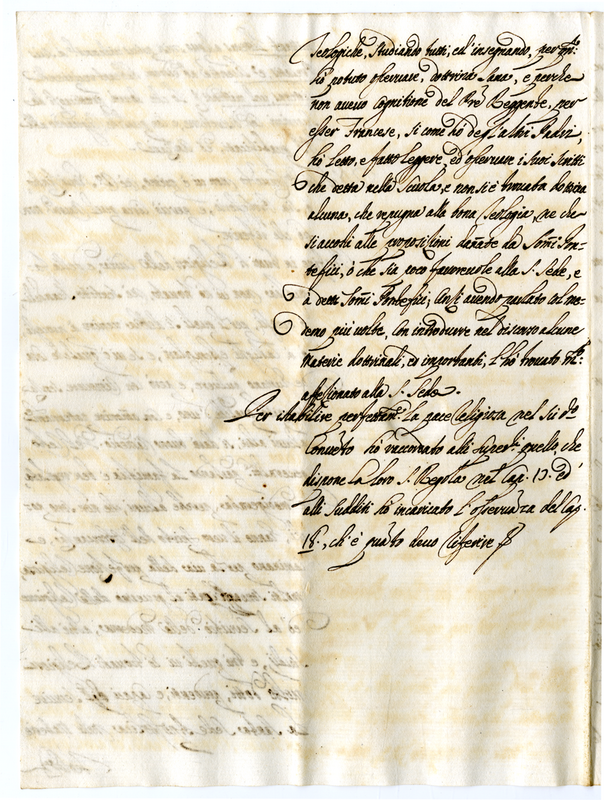 Teologiche, studiando tutti, ed' insegnando, per q.to
hò potuto osseruare, dottrina sana, e perche
non aueuo cognitione del P're Reggente, per
esser Francese, si come hò degl'altri Padri,
hò letto, e fatto leggere, ed' osseruare i suoi scritti
che detta nella scuola, e non si è trouata dottrina
alcuna, che repugna alla bona Teologia, ne che
si accosti alle propositioni dañate da Som̃i Pon=
tefici, ò che sia poco fauoreuole alla S. Sede, e
à detti Som̃i Pontefici; Anzi auendo parlato col me=
demo più uolte, con introdurre nel discorso alcune
materie dottrinali, et importanti, l'hò trouato m.to
affezionato alla S. Sede.
Per istabilire perfettam.te la pace Religiosa nel sud.o
Conuento hò raccomᵃto alli super.ri quello, che
dispone la loro S. Regola nel Cap. 17. ed'
alli sudditi hò incaricato l'osseruãza del Cap.
18., ch' è quãto deuo riferire